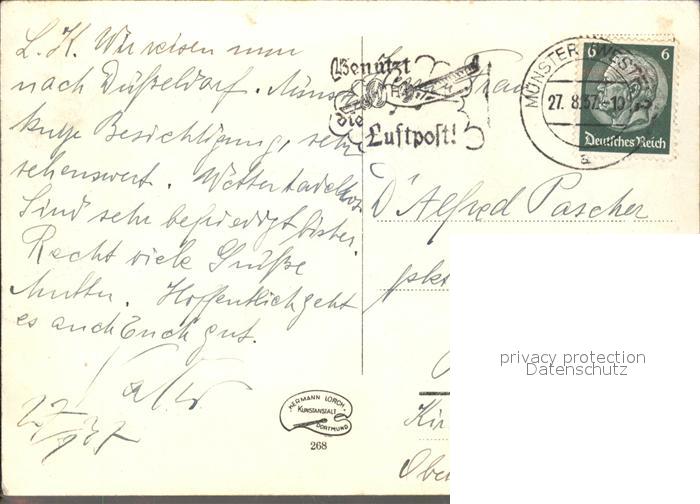 L. K. Wir reisen nun
nach Düsseldorf.
kurze Besichtigung, sehr
sehenswert. Wetter tadellos.
Sind sehr befriedigt bisher.
Recht viele Grüße
Mutter. Hoffentlich geht
es auch Euch gut.
Benützt
die
Luftpost!
MÜNSTER (WESTF)
27. 8. 37. -10
a
6 6
Deutsches Reich
Dr Alfred Pascher
HERMANN LORCH
KUNSTANSTALT
DORTMUND
268
privacy protection
Datenschutz